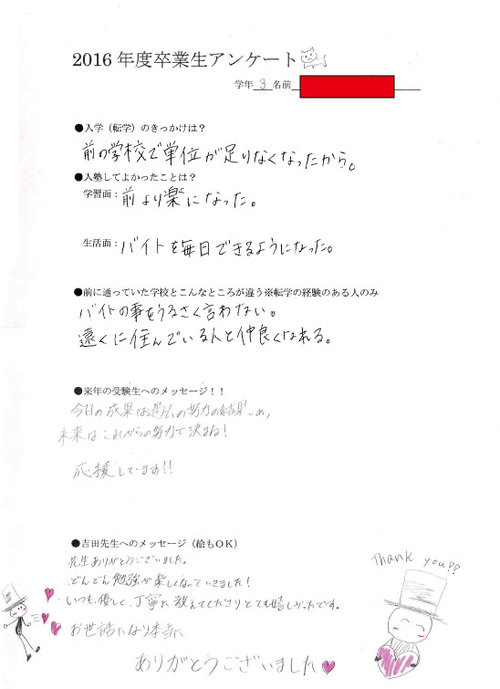 2016 年度卒業生アンケート
学年 3 名前
●入学（転学）のきっかけは？
前の学校で単位が足りなくなったから。
●入塾してよかったことは？
学習面：前より楽になった。
生活面：バイトを毎日できるようになった。
●前に通っていた学校とこんなところが違う※転学の経験のある人のみ
バイトの事をうるさく言わない。
遠くに住んでいる人と仲良くなれる。
●来年の受験生へのメッセージ！！
今日の成果は過去の努力の結果であり、
未来はこれからの努力で決まる！
応援しています!!
●吉田先生へのメッセージ（絵もＯＫ）
先生ありがとうございました。
どんどん勉強が楽しくなっていきました！
いつも優しく、丁寧に教えてくださりとても嬉しかったです。
お世話になり本当に
ありがとうございました
Thank you!!